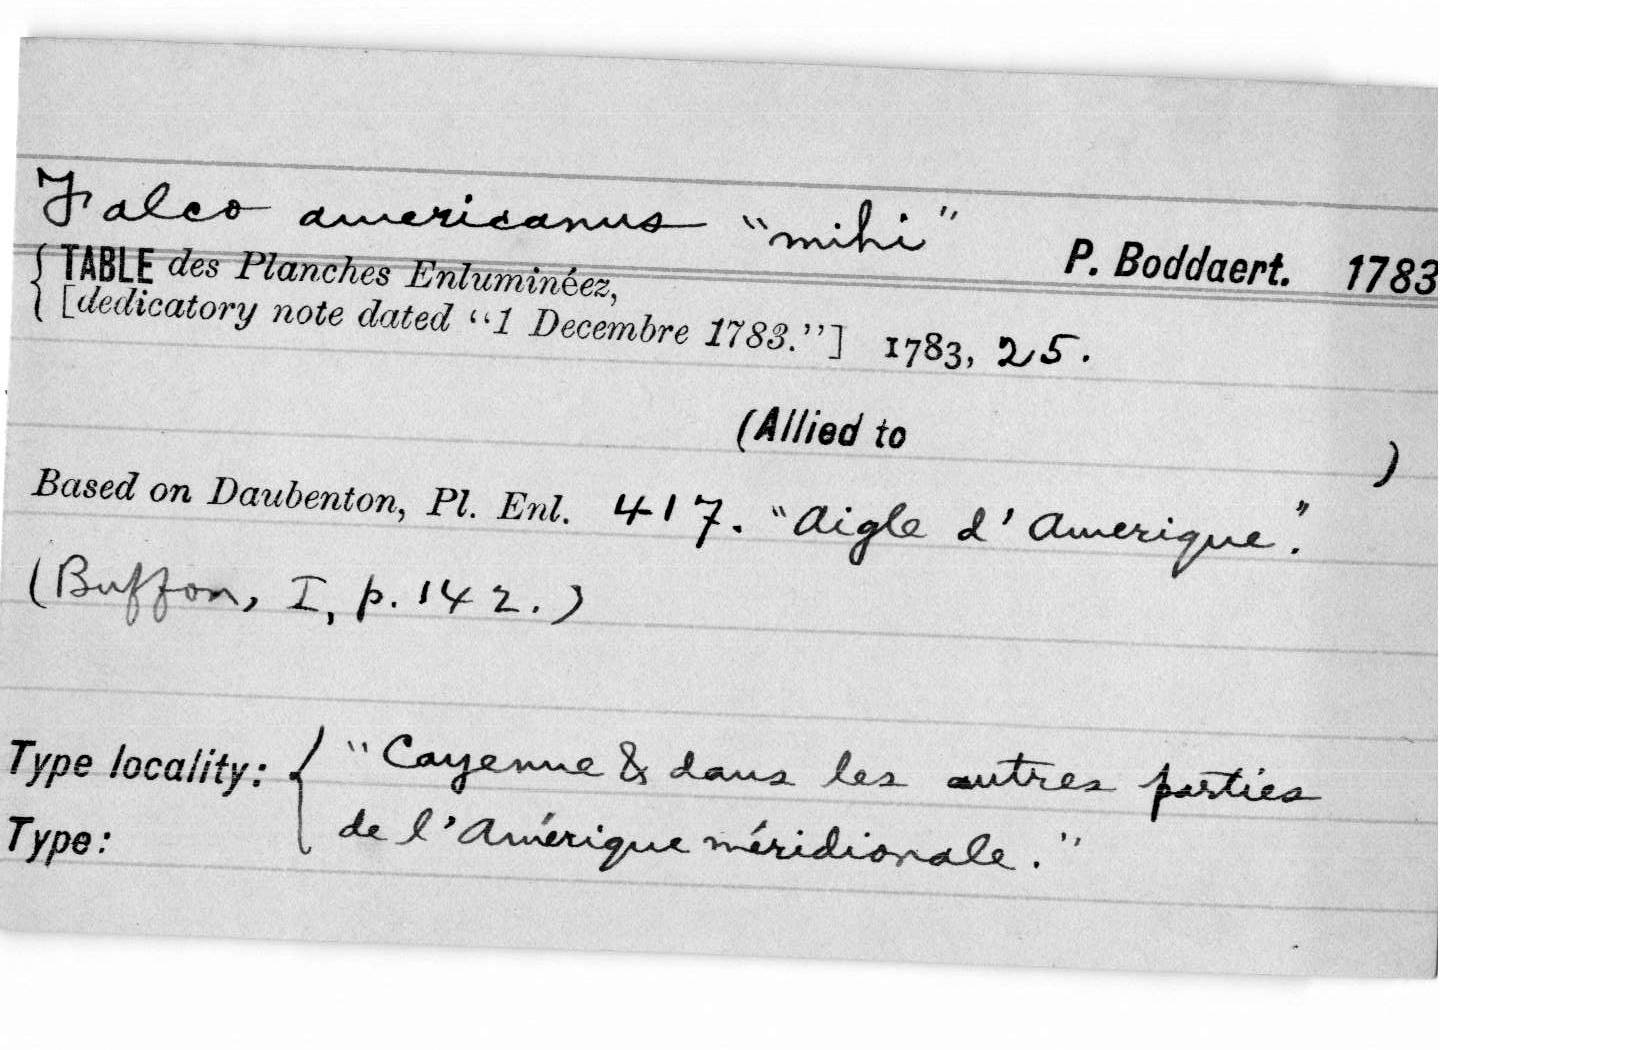 Falco americanus "mihi" P. Boddaert. 1783
{ TABLE des Planches Enluminéez,
[dedicatory note dated "1 Decembre 1783."] 1783, 25.
(Allied to )
Based on Daubenton, Pl. Enl. 417. "Aigle d'Amerique".
(Buffon, I, p. 142.)
Type locality: { "Cayenne & dans les autres parties
Type: de l'Amérique méridionale."